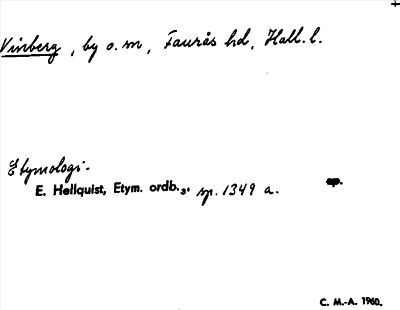 Vinberg, by o. sn, Faurås hd, Hall. l.
Etymologi.
E. Hellquist, Etym. ordb.3, sp. 1349 a. sp.
C. M.-A. 1960.